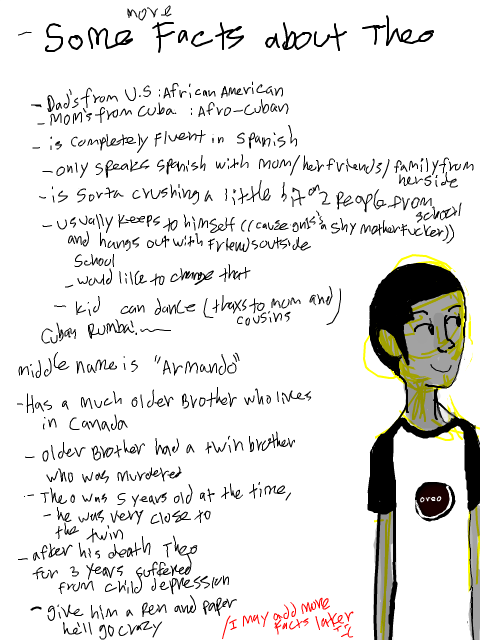 more
- Some Facts about Theo
- Dad's from U.S : African American
- Mom's from Cuba : Afro-Cuban
- is completely fluent in Spanish
- only speaks spanish with mom/her friends/family from her side
- is sorta crushing a little bit on 2 people from school
- usually keeps to himself ((cause onts a shy motherfucker))
and hangs out with friends outside
school
- would like to change that
- kid can dance (thaxs to mom and
cousins)
Cuban Rumba!
middle name is "Armando"
- Has a much older Brother who lives
in Canada
- older Brother had a twin brother
who was murdered
- Theo was 5 years old at the time,
- he was very close to
the twin
- after his death Theo
for 3 years suffered
from child depression
- give him a Pen and paper
he'll go crazy
/I may add more
facts later
oreo